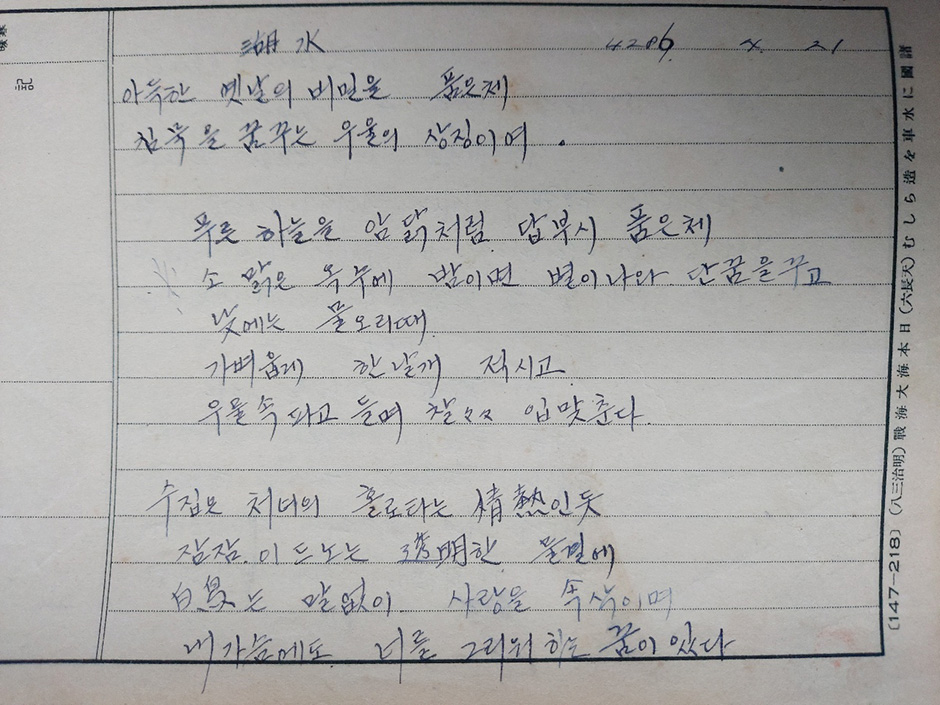 湖水 4286. X. 21
아득한 옛날의 비밀을 품은체
침묵을 꿈꾸는 우울의 상징이여.
푸룻 하늘을 암닭처럼 답부시 품은체
소 맑은 옥수에 밤이면 별이나와 단꿈을꾸고
낮에는 물오리떼
가벼웁게 한날개 적시고
우물속 파고 들며 찰々々 입맞춘다.
수집은 처녀의 홀로타는 情熱인듯
잠잠.이 드노는 透明한 물결에
白鳥는 말없이 사랑을 속삭이며
내가슴에도 너를 그리워 하는 꿈이 있다
記
〔147−218〕 (八三治明) 戰海大海本日 (六長天) むしら造々車水に國諸